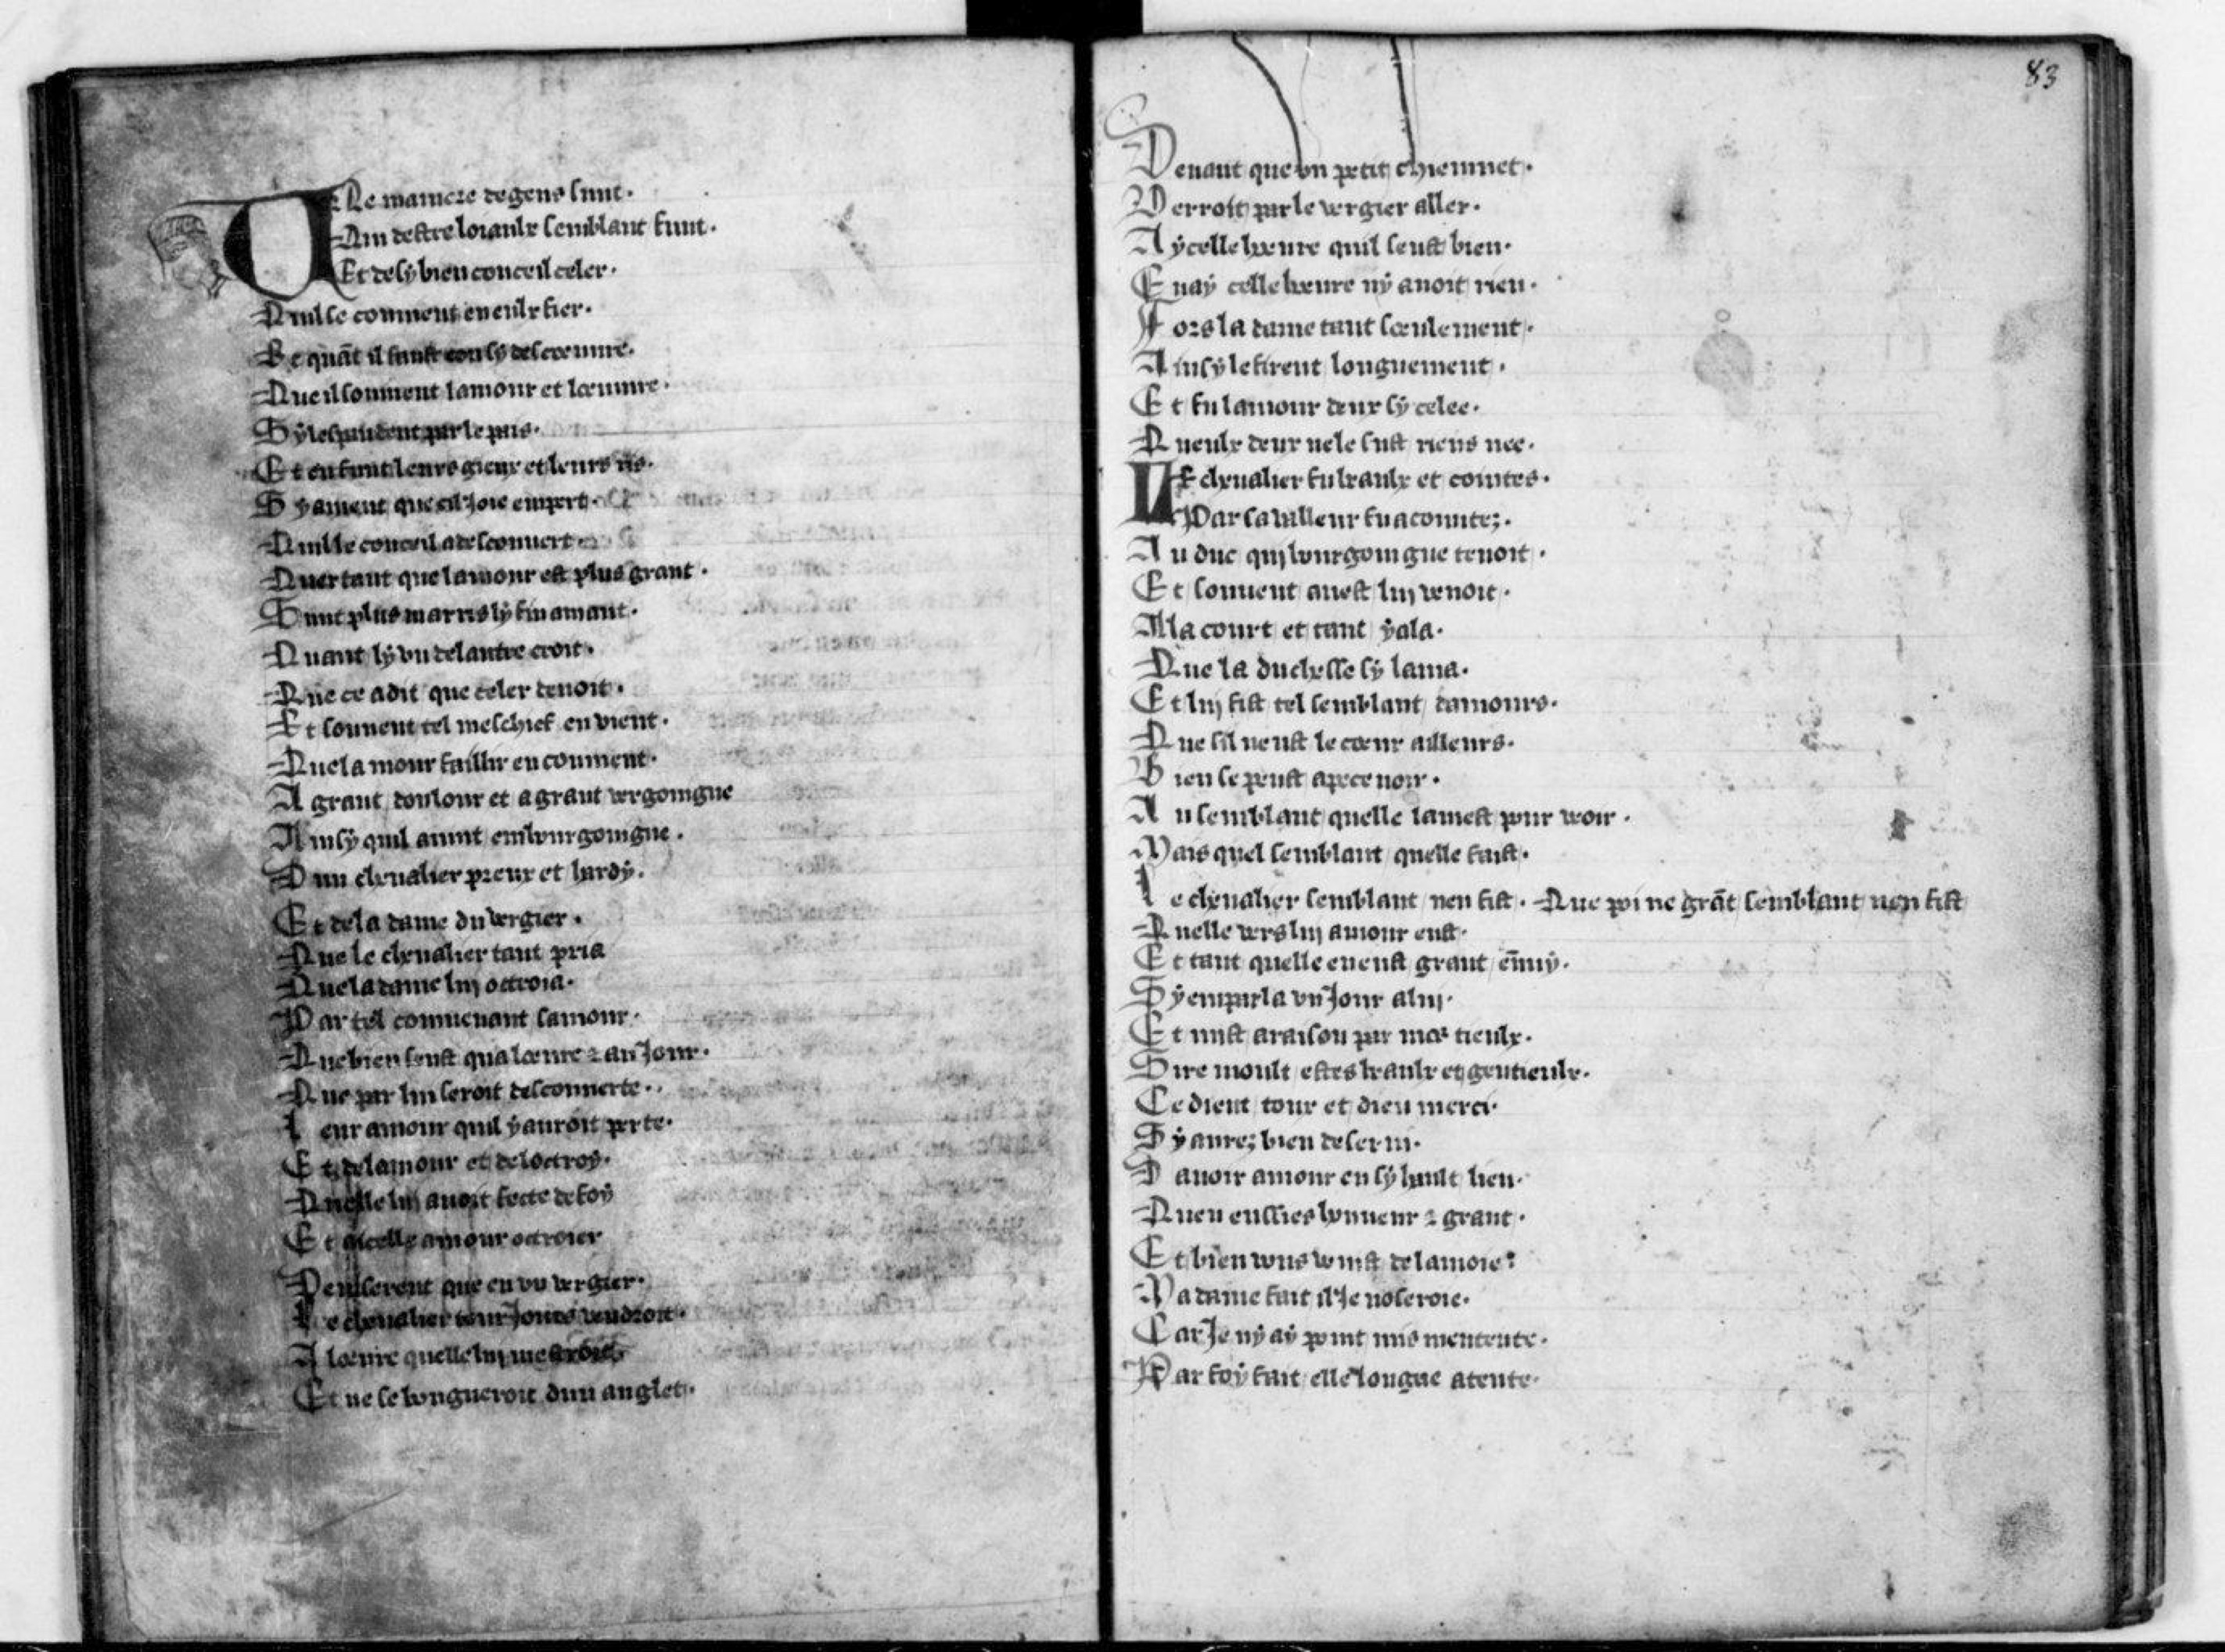 Une maniere de gens sunt.
Qui destre loiaulx semblant funt.
Et de sÿ bien conceil celer.
Quil se convient en eulx fier.
Et quãt il fault con sÿ descoeuvre.
Que il sonnent lamour et loeuvre.
Sÿ lespandent par le pais.
Et en funt leurs gieux et leurs ris.
Sÿ avient que cil Joie empert.
Qui le conceil a descouvert.
Quer tant que lamour est plus grant.
Sunt plus marris lÿ fin amant.
Quant lÿ vn de lautre croit.
Que ce a dit que celer devoit.
Et souvent tel meschief en vient.
Que lamour faillir en convient.
A grant doulour et a grant vergoingne
Ainsÿ quil avint em bourgoingne.
Dun chevalier preux et hardÿ.
Et de la dame du vergier.
Que le chevalier tant pria
Que la dame luy octroia.
Par tel convenant samour.
Que bien seust qua loeure & au Jour.
Que par lui seroit descouverte.
Leur amour quil ÿ auroit perte.
Et de lamour et de loctroy.
Quelle luy avoit fecte de foÿ
Et a icelle amour octroier
Penserent que en vn vergier.
Le chevalier tour Jours vendroit.
A loeure quelle luy mestroit.
Et ne se bougueroit dun anglet.
83
Devant que vn petit chiennet.
Verroit par le vergier aller.
A ÿcelle heure quil seust bien.
Enaÿ celle heure nÿ avoit rien.
Fors la dame tant soeulement.
Ainsÿ le firent longuement.
Et fu lamour deux sÿ celee.
Queulx deux ne le sust riens nee.
Le chevalier fu beaulx et cointes.
Par sa valleur fu acointez.
Au duc qui bourgoingne tenoit.
Et souvent avest luy venoit.
A la court et tant ÿ ala.
Que la duchesse sÿ lama.
Et luy fist tel semblant damours.
Que sil neust le coeur ailleurs.
Bien se peust apecevoir.
Au semblant quelle lamest pour voir.
Mais quel semblant quelle faist.
Le chevalier semblant nen fist. Que poi ne grãt semblant nen fist
Quelle vers luy amour eust.
Et tant quelle en eust grant ẽnuÿ.
Sÿ em parla vn Jour a luy.
Et mist a raison par mos tieulx.
Sire moult estes beaulx et gentieulx.
Ce dient tout et dieu merci.
Sÿ aurez bien deservi.
Davoir amour en sÿ hault lieu.
Quen eussies honneur & grant.
Et bien vous vouist de lamoie:
Ma dame fait il Je noseroie.
Car Je nÿ aÿ point mis mentente.
Par foÿ fait elle longue atente.